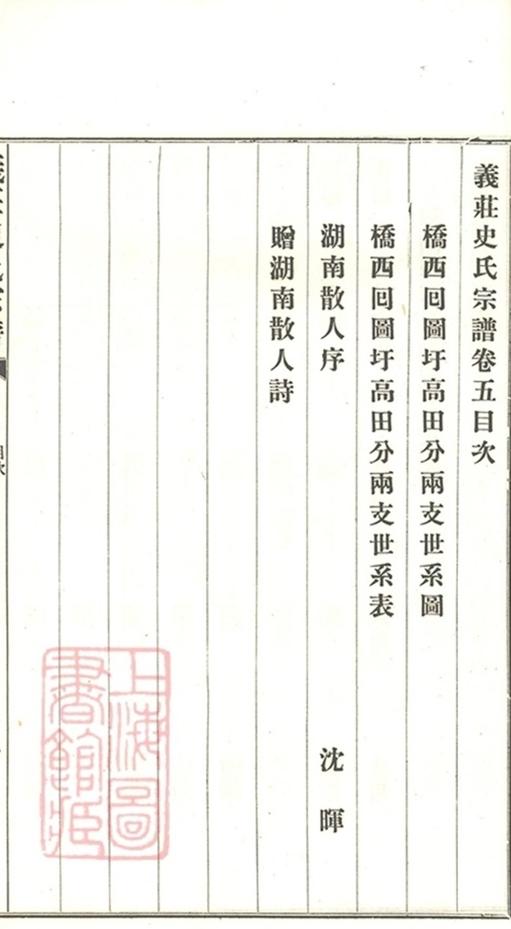 義莊史氏宗譜卷五目次
橋西囘圖圩高田分兩支世系圖
橋西囘圖圩高田分兩支世系表
湖南散人序 沈暉
贈湖南散人詩
上海圖書館藏